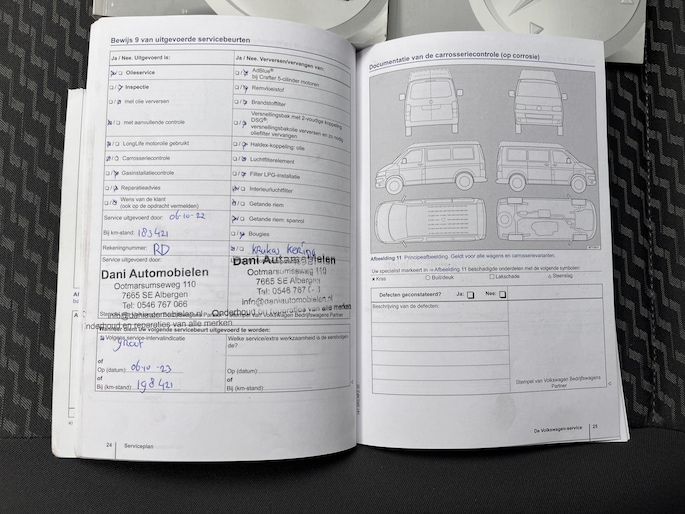 Bewijs 9 van uitgevoerde servicebeurten
Ja / Nee. Uitgevoerd is:
Olieservice
Inspectie
met olie verversen
met aanvullende controle
LongLife motorolie gebruikt
Carrosseriecontrole
Gasinstallatiecontrole
Reparatieadvies
Wens van de klant
(ook op de opdracht vermelden)
Service uitgevoerd door: 06-10-22
Bij km-stand: 183421
Rekeningnummer: RD
Service uitgevoerd door:
Dani Automobielen
Ootmarsumseweg 110
7665 SE Albergen
Tel: 0546 767 066
info@daniautomobielen.nl
Onderhoud en reparaties van alle merken
Ja / Nee. Verversen/vervangen van:
AdBlue®
bij Crafter 5-cilinder motoren
Remvloeistof
Brandstoffilter
Versnellingsbak met 2-voudige koppeling
DSG®
versnellingsbakolie verversen en zo nodig
oliefilter vervangen
Haldex-koppeling: olie
Luchtfilterelement
Filter LPG-installatie
Interieurluchtfilter
Getande riem
Getande riem: spanrol
Bougies
Dani Automobielen
Ootmarsumseweg 110
7665 SE Albergen
Tel: 0546 767
info@daniautomobielen
Onderhoud en reparaties van alle merken
Wanneer dient de volgende servicebeurt uitgevoerd te worden:
Volgens service-intervalindicatie
of
Op (datum): 06-10-23
of
Bij (km-stand): 198421
Welke service/extra werkzaamheid is de eerstvolgen-
de?
of
Op (datum):
of
Bij (km-stand):
24 Serviceplan
Documentatie van de carrosseriecontrole (op corrosie)
Afbeelding 11 Principeafbeelding. Geldt voor alle wagens en carrosserievarianten.
Uw specialist markeert in ⇒Afbeelding 11 beschadigde onderdelen met de volgende symbolen:
× Kras
○ Buil/deuk
□ Lakschade
Steenslag
Defecten geconstateerd? Ja: Nee:
Beschrijving van de defecten:
Stempel van Volkswagen Bedrijfswagens
Partner
De Volkswagen-service 25